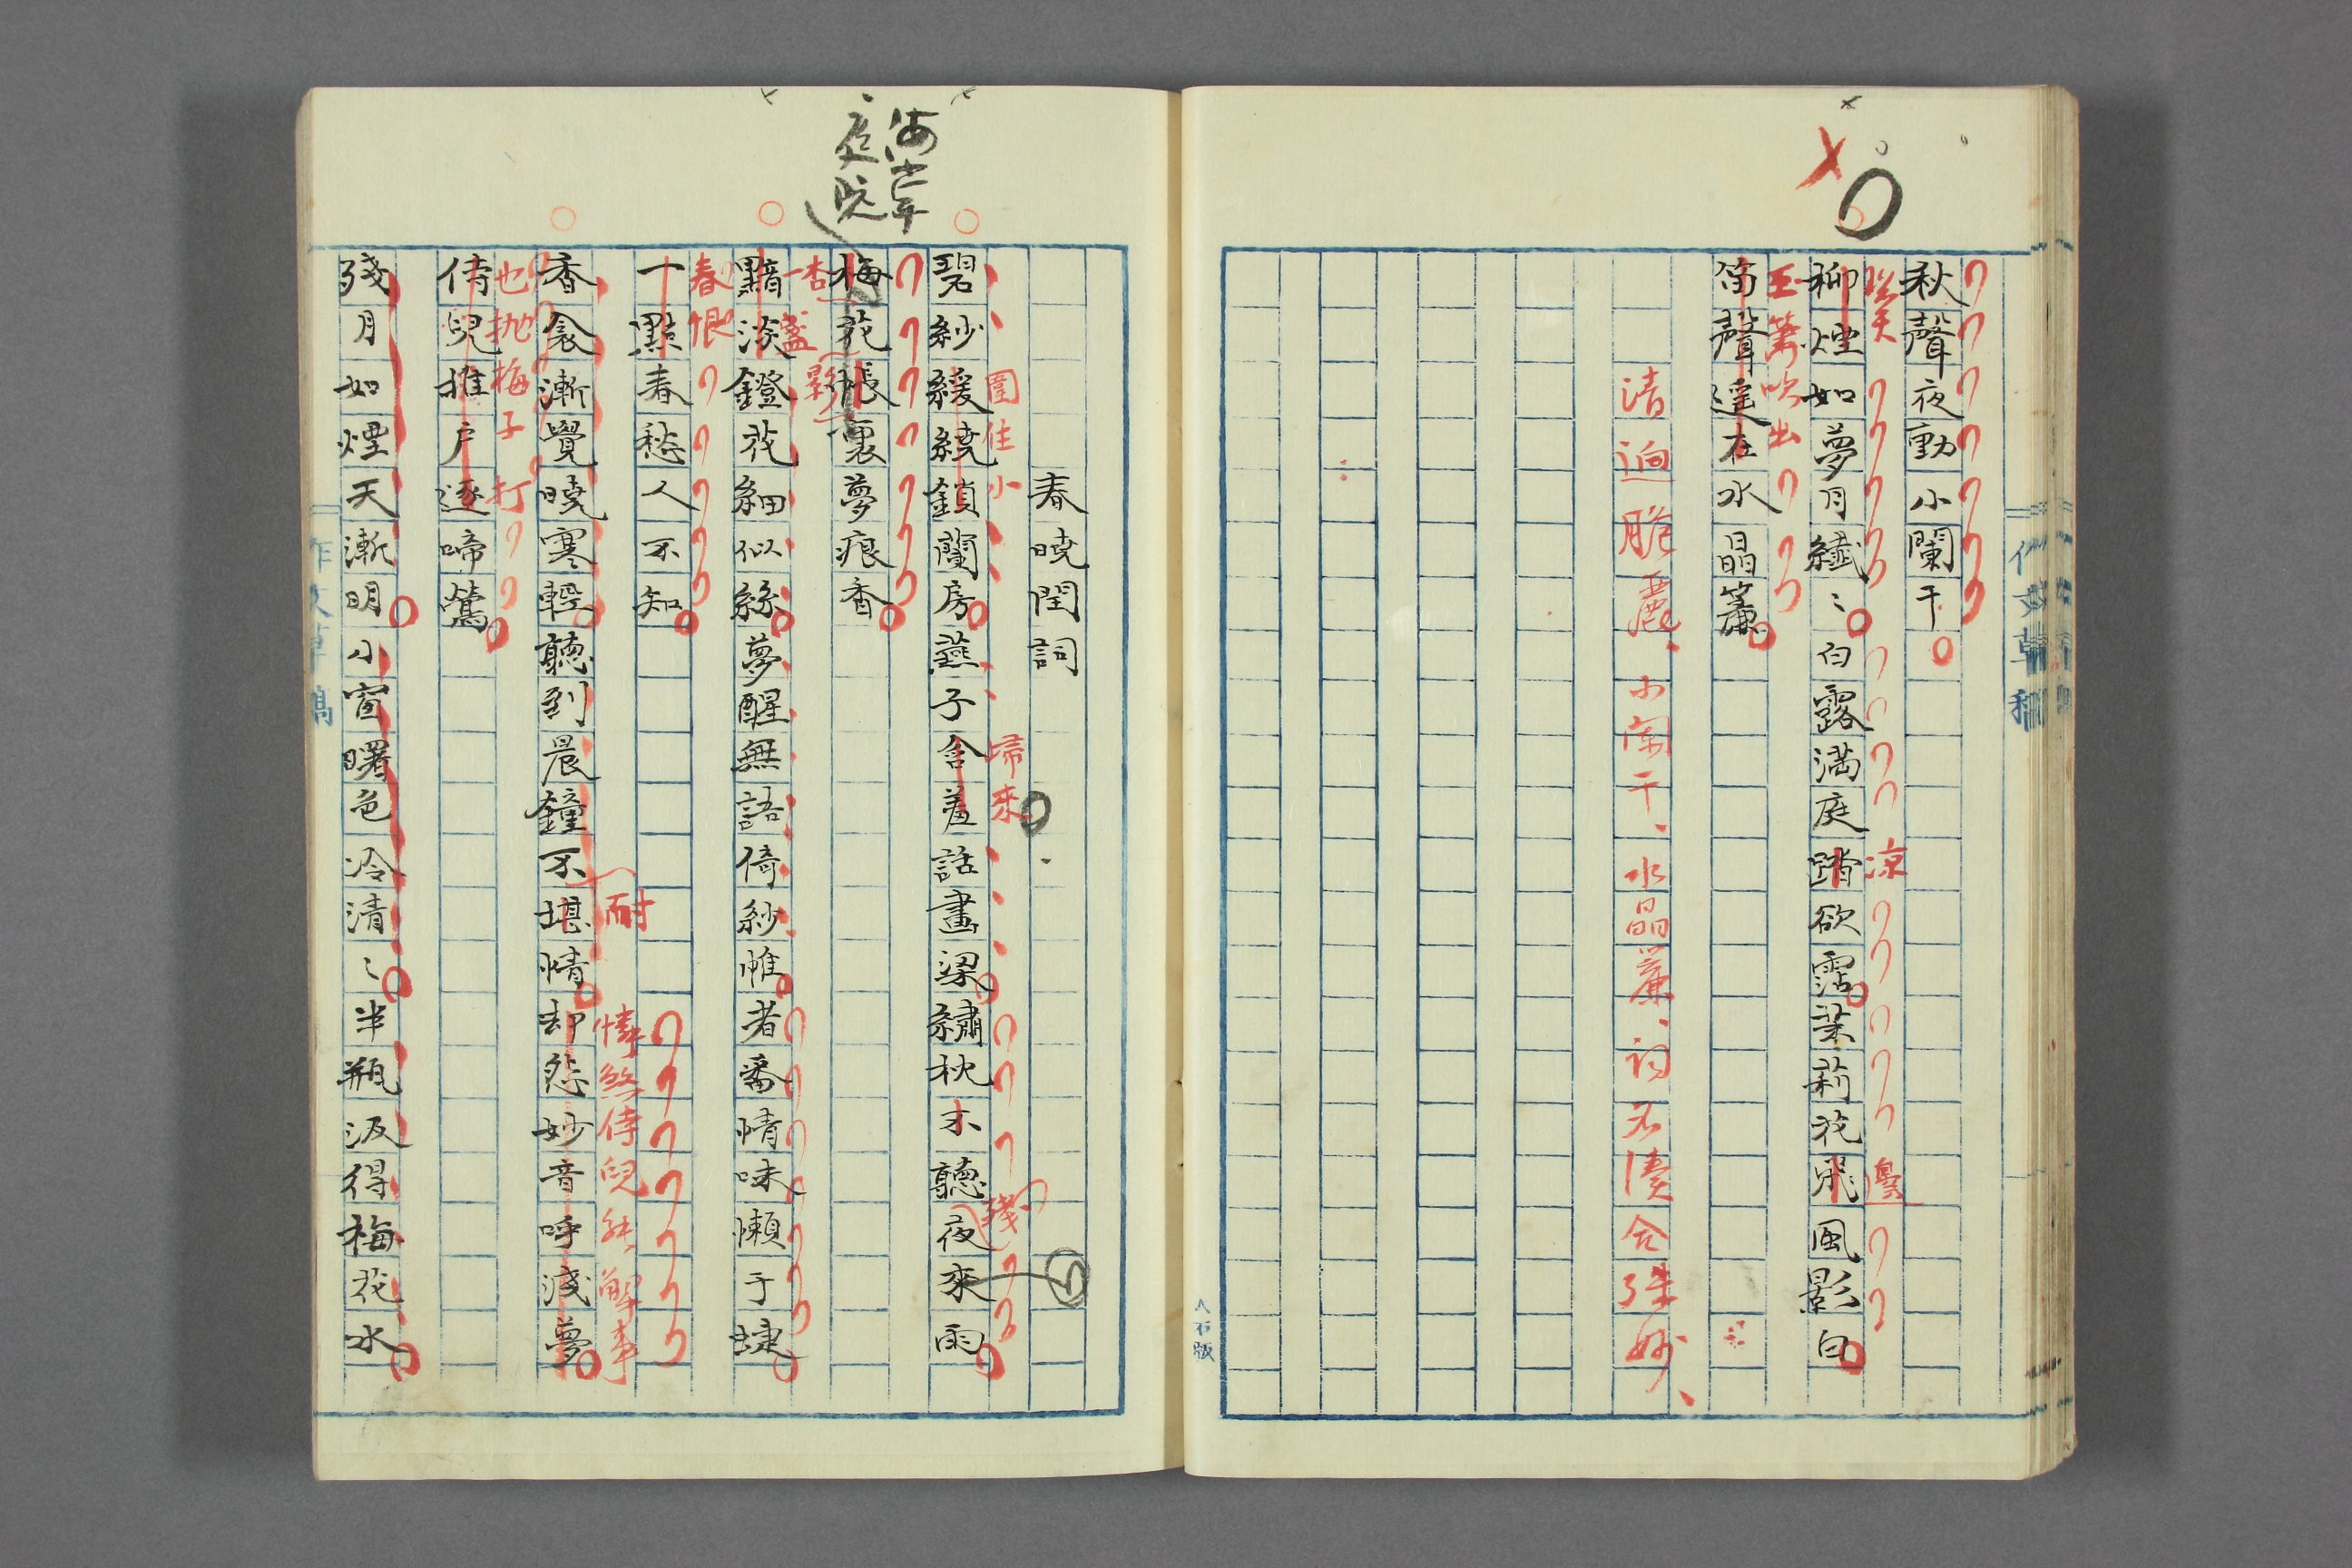 秋聲夜動小闌干
柳煙如夢月纖〻白露満庭踏欲霑茉莉花飛風影白
涼
邊
玉簫吹出
笛聲遙在水晶簾
清逈脆麗、小闌干、水晶簾、詞
合殊妙、
作文草稿
春曉閨詞
圍住小
歸來
殘
碧紗緩繞鎖蘭房燕子含羞話畫梁繡枕不聽夜來雨
海棠
庭院
梅花帳裏夢痕香
一杏
盞
影
黯淡鐙花細似絲夢醒無語倚紗帷者番情味懶于婕
春恨
一點春愁人不知
耐
憐煞侍兒能解事
香衾漸覺曉寒輕聽到晨鐘不堪情却怨妙音呼淺夢
也抛梅子打
侍兒推戶逐啼鶯
殘月如煙天漸明小窗曙色冷清〻半瓶汲得梅花水
作文草稿